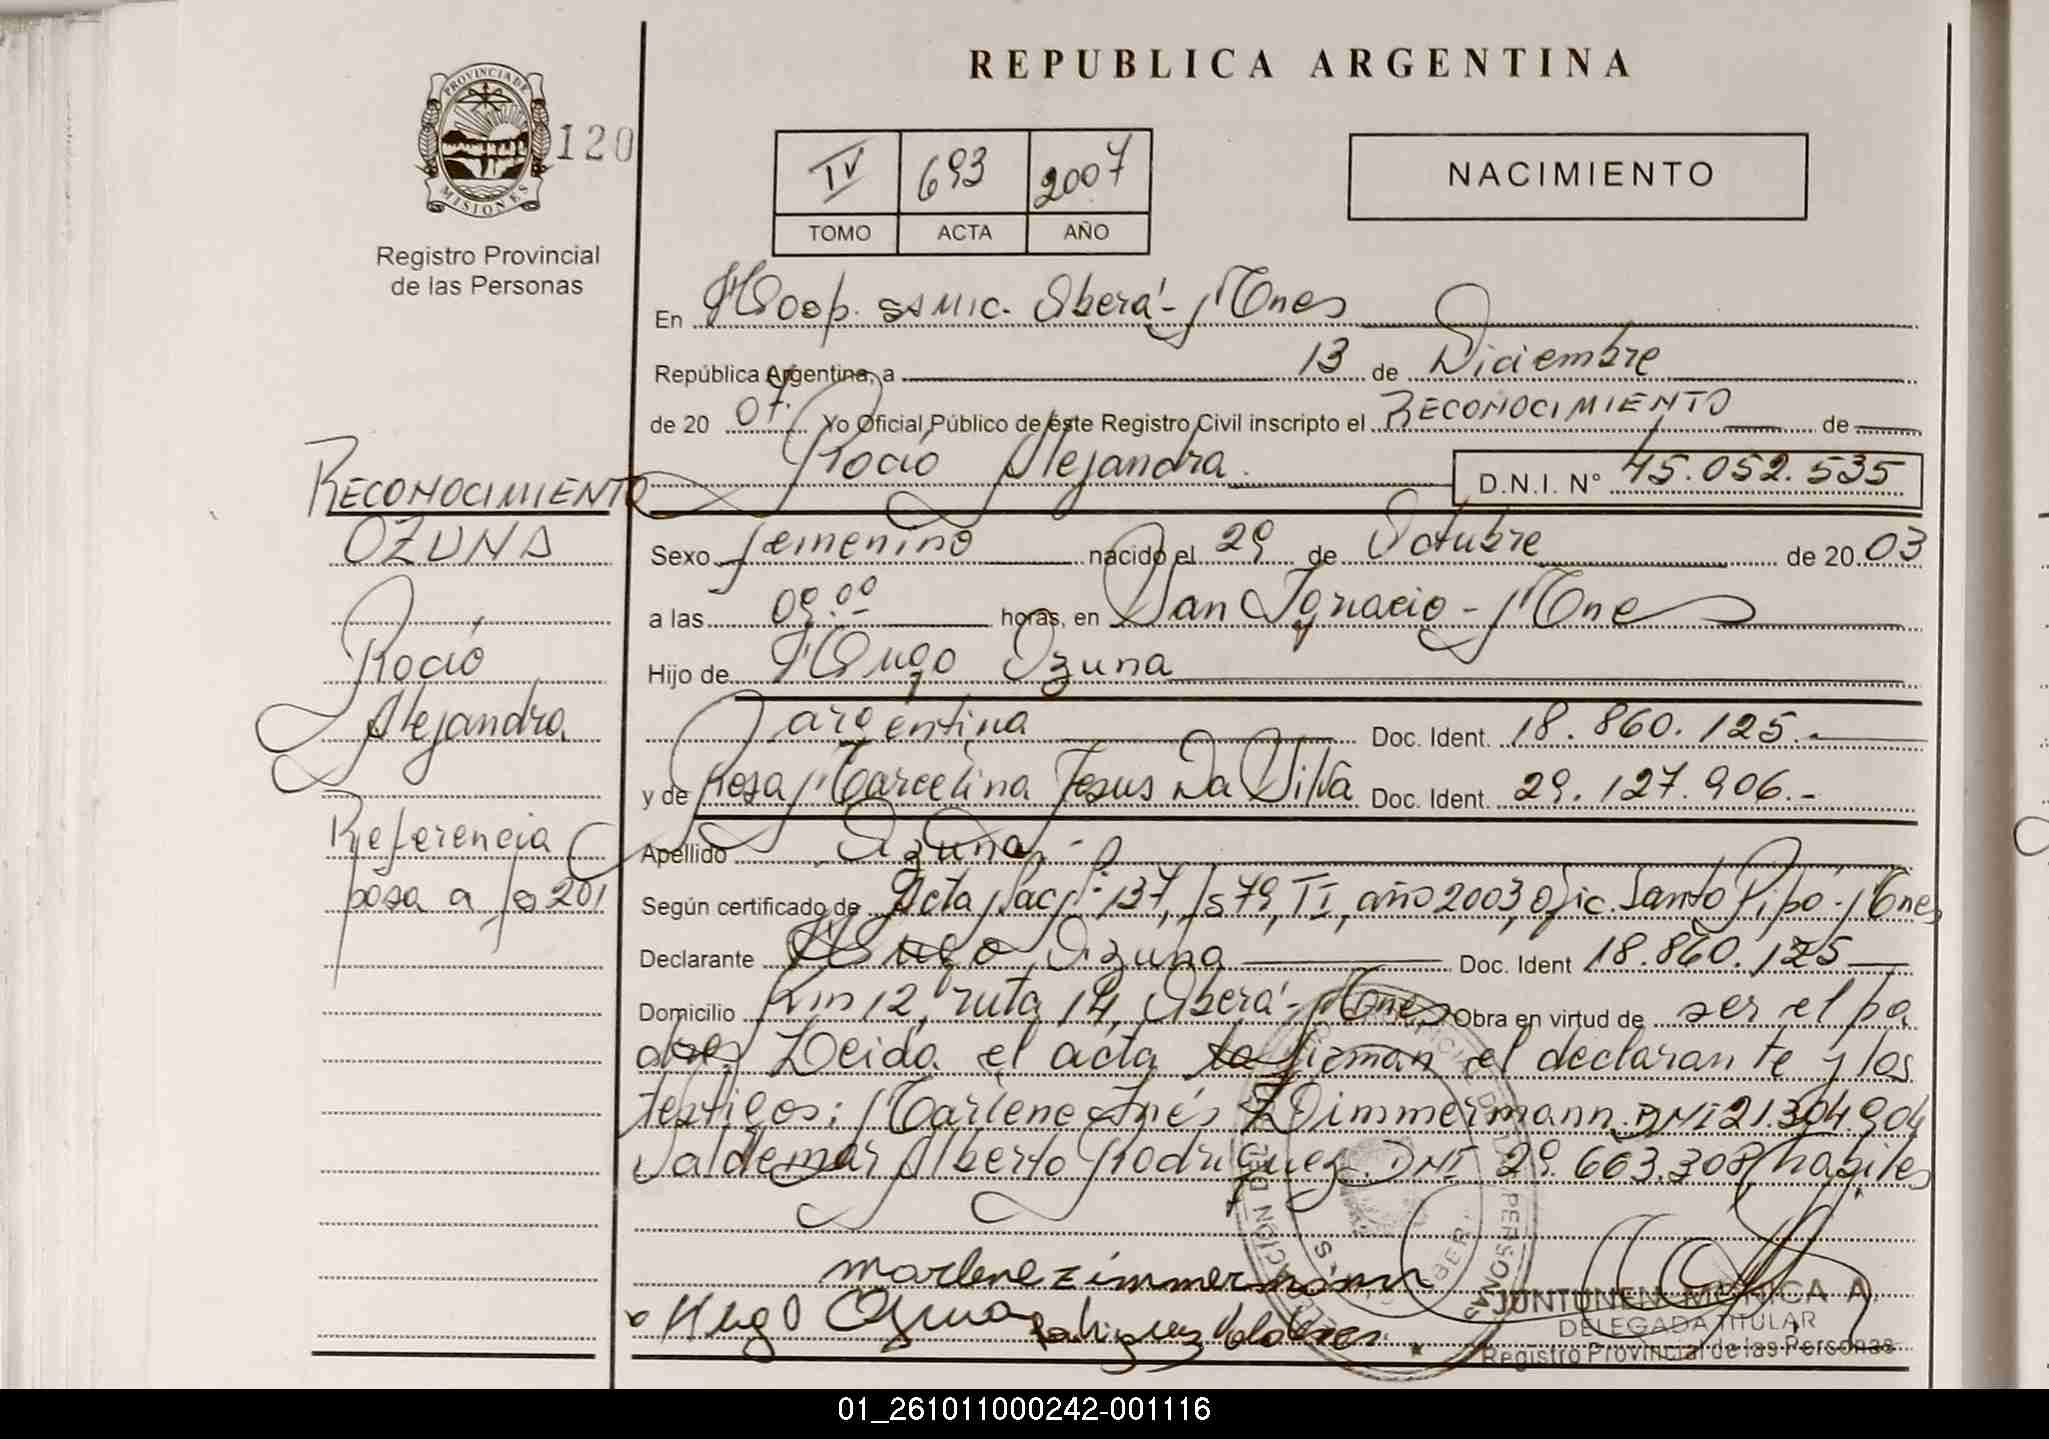 REPUBLICA ARGENTINA
PROVINCIA DE
MISIONES
120
Registro Provincial
de las Personas
IV 693 2007
TOMO ACTA AÑO
NACIMIENTO
En Hosp. SAMIC. Oberá - Mnes
República Argentina, a 13 de Diciembre
de 20 07. Yo Oficial Público de éste Registro Civil inscripto el RECONOCIMIENTO de
Rocío Alejandra. D.N.I. N° 45.052.535
Sexo femenino nacido el 29 de Octubre de 20 03
a las 09:00 horas, en San Ignacio - Mnes
Hijo de Hugo Ozuna
argentina Doc. Ident. 18.860.125.-
y de Rosa Marcelina Jesus Da Silva Doc. Ident. 29.127.906.-
Apellido Ozuna -
Según certificado de Acta Nac. 137, fs 79, TI, año 2003, Ofic. Santo Pipó - Mnes
Declarante Hugo Ozuna Doc. Ident 18.860.125
Domicilio Km 12, ruta 14, Oberá - Mnes Obra en virtud de ser el pa
dre, Leida el acta la firman el declarante y los
testigos: Marlene Inés Zimmermann DNI 21.304.904
Valdemar Alberto Rodriguez DNI 29.663.308, habiles
marlene zimmermann
Hugo Ozuna Rodriguez
JUNTUNEN MONICA A.
DELEGADA TITULAR
Registro Provincial de las Personas
RECONOCIMIENTO
OZUNA
Rocío
Alejandra
Referencia
pasa a fo 201
01_261011000242-001116